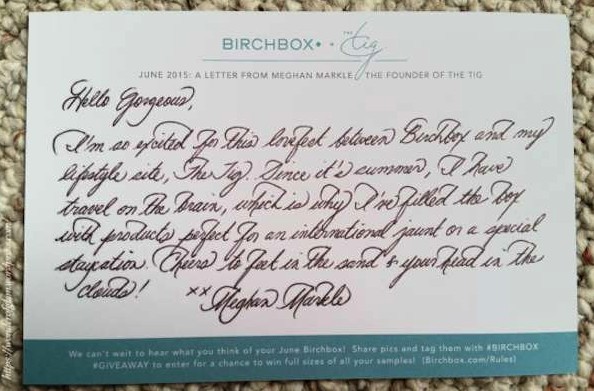 BIRCHBOX• • THE tig
JUNE 2015: A LETTER FROM MEGHAN MARKLE, THE FOUNDER OF THE TIG
Hello Gorgeous,
I'm so excited for this lovefest between Birchbox and my
lifestyle site, The Tig. Since it's summer, I have
travel on the brain, which is why I've filled the box
with products perfect for an international jaunt or a special
staycation. Cheers to feet in the sand & your head in the
clouds! xx Meghan Markle
We can't wait to hear what you think of your June Birchbox! Share pics and tag them with #BIRCHBOX
#GIVEAWAY to enter for a chance to win full sizes of all your samples! (Birchbox.com/Rules)